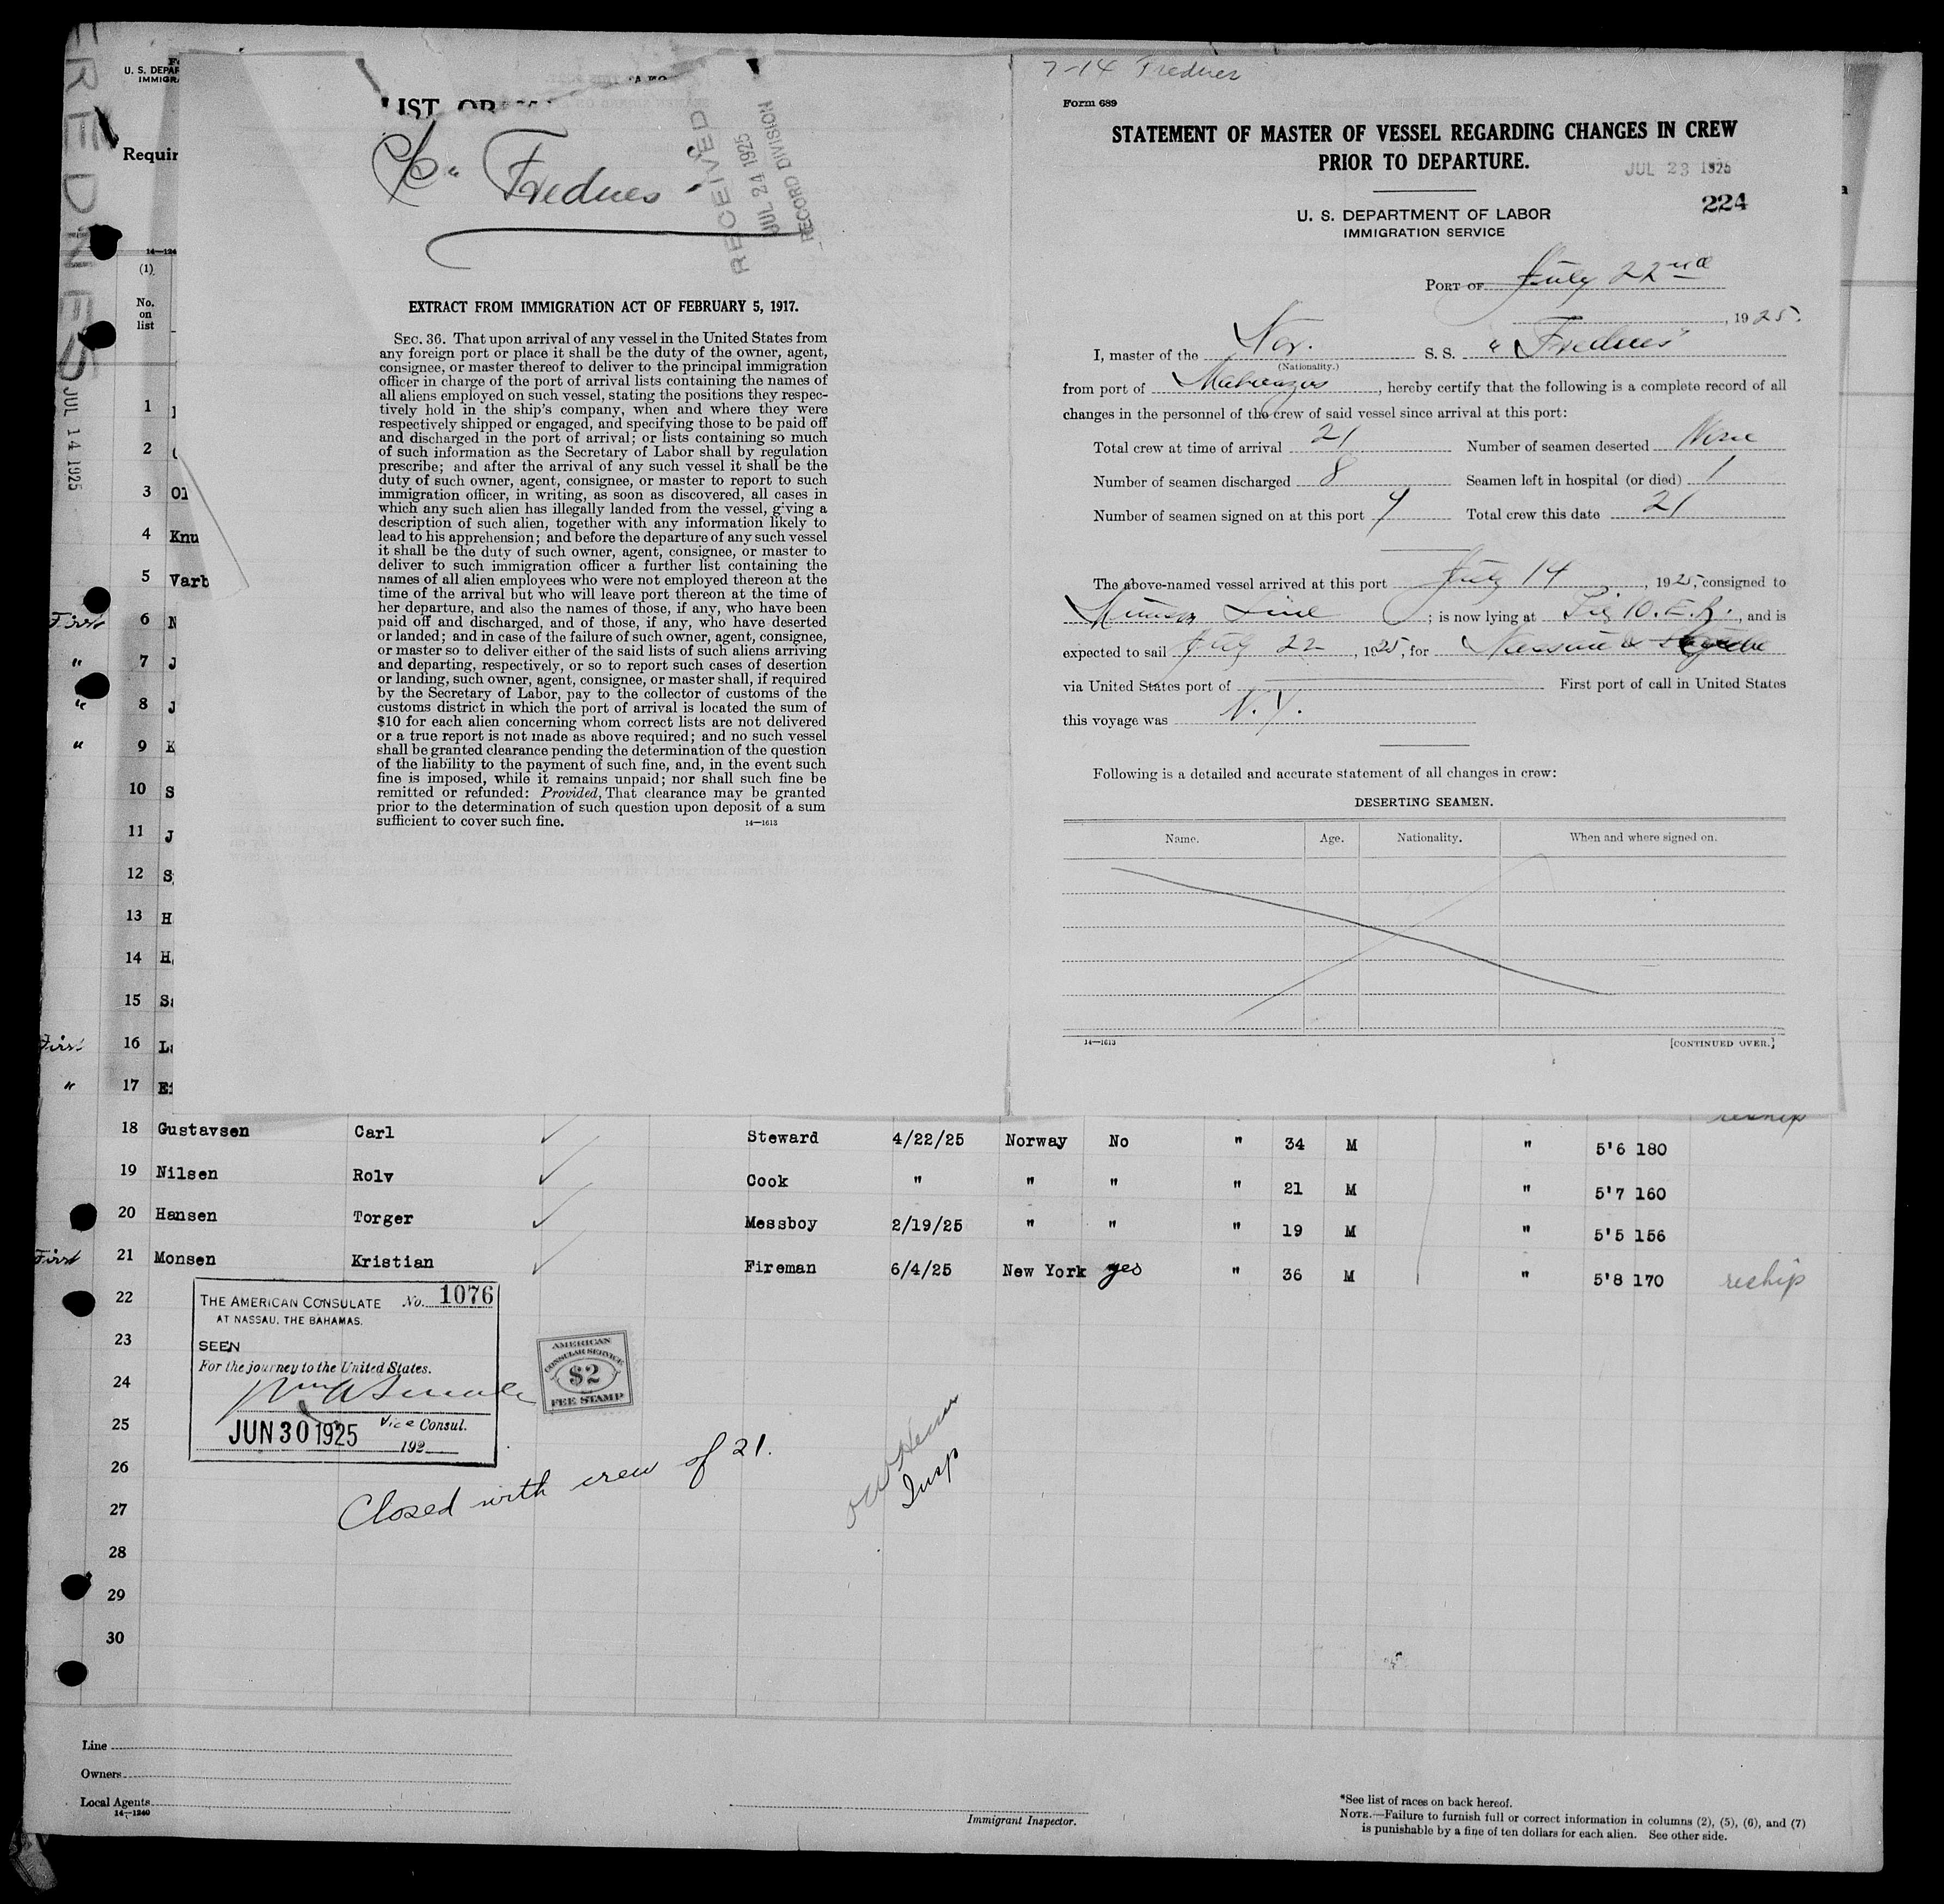 FREDNES
JUL 14 1925
U. S. DEPAR
IMMIGRA
Requir
14—124
(1)
No.
on
list
LIST OR
S/S "Frednes"
RECEIVED
JUL 24 1925
RECORD DIVISION
EXTRACT FROM IMMIGRATION ACT OF FEBRUARY 5, 1917.
SEC. 36. That upon arrival of any vessel in the United States from
any foreign port or place it shall be the duty of the owner, agent,
consignee, or master thereof to deliver to the principal immigration
officer in charge of the port of arrival lists containing the names of
all aliens employed on such vessel, stating the positions they respec-
tively hold in the ship's company, when and where they were
respectively shipped or engaged, and specifying those to be paid off
and discharged in the port of arrival; or lists containing so much
of such information as the Secretary of Labor shall by regulation
prescribe; and after the arrival of any such vessel it shall be the
duty of such owner, agent, consignee, or master to report to such
immigration officer, in writing, as soon as discovered, all cases in
which any such alien has illegally landed from the vessel, giving a
description of such alien, together with any information likely to
lead to his apprehension; and before the departure of any such vessel
it shall be the duty of such owner, agent, consignee, or master to
deliver to such immigration officer a further list containing the
names of all alien employees who were not employed thereon at the
time of the arrival but who will leave port thereon at the time of
her departure, and also the names of those, if any, who have been
paid off and discharged, and of those, if any, who have deserted
or landed; and in case of the failure of such owner, agent, consignee,
or master so to deliver either of the said lists of such aliens arriving
and departing, respectively, or so to report such cases of desertion
or landing, such owner, agent, consignee, or master shall, if required
by the Secretary of Labor, pay to the collector of customs of the
customs district in which the port of arrival is located the sum of
$10 for each alien concerning whom correct lists are not delivered
or a true report is not made as above required; and no such vessel
shall be granted clearance pending the determination of the question
of the liability to the payment of such fine, and, in the event such
fine is imposed, while it remains unpaid; nor shall such fine be
remitted or refunded: Provided, That clearance may be granted
prior to the determination of such question upon deposit of a sum
sufficient to cover such fine. 14—1613
7-14 Frednes
Form 689
STATEMENT OF MASTER OF VESSEL REGARDING CHANGES IN CREW
PRIOR TO DEPARTURE.
JUL 23 1925
224
U. S. DEPARTMENT OF LABOR
IMMIGRATION SERVICE
PORT OF July 22nd
, 1925.
I, master of the Nor. S. S. "Frednes"
(Nationality.)
from port of , hereby certify that the following is a complete record of all
changes in the personnel of the crew of said vessel since arrival at this port:
Total crew at time of arrival 21 Number of seamen deserted None
Number of seamen discharged 8 Seamen left in hospital (or died) 1
Number of seamen signed on at this port 9 Total crew this date 21
The above-named vessel arrived at this port July 14, 1925, consigned to
Munson Line; is now lying at Pier 10. E.R., and is
expected to sail July 22, 1925, for Nassau &
via United States port of First port of call in United States
this voyage was N.Y.
Following is a detailed and accurate statement of all changes in crew:
DESERTING SEAMEN.
Name. Age. Nationality. When and where signed on.
14—1613 [CONTINUED OVER.]
1
2
3 Ol
4 Knu
5 Varb
First 6 N
" 7 J
" 8 J
" 9 K
10 S
11 J
12 S
13 H
14 H
15 Sa
First 16 La
" 17 Ei
reship
18 Gustavsen Carl Steward 4/22/25 Norway No " 34 M " 5'6 180
19 Nilsen Rolv Cook " " " " 21 M " 5'7 160
20 Hansen Torger Messboy 2/19/25 " " " 19 M " 5'5 156
First 21 Monsen Kristian Fireman 6/4/25 New York yes " 36 M " 5'8 170 reship
22
23
24
25
26
27
28
29
30
THE AMERICAN CONSULATE No. 1076
AT NASSAU, THE BAHAMAS.
SEEN
For the journey to the United States.
JUN 30 1925 Vice Consul.
192
AMERICAN
CONSULAR SERVICE
$2
FEE STAMP
Closed with crew of 21.
Insp
Line
Owners
Local Agents
14—1240
Immigrant Inspector.
*See list of races on back hereof.
NOTE.—Failure to furnish full or correct information in columns (2), (5), (6), and (7)
is punishable by a fine of ten dollars for each alien. See other side.